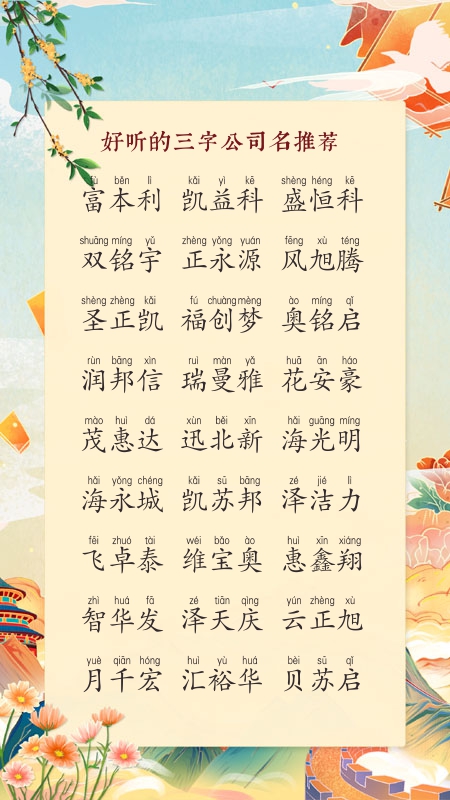 好听的三字公司名推荐
fù běn lì kǎi yì kē shèng héng kē
富本利 凯益科 盛恒科
shuāng míng yǔ zhèng yǒng yuán fēng xù téng
双铭宇 正永源 风旭腾
shèng zhèng kǎi fú chuàng mèng ào míng qǐ
圣正凯 福创梦 奥铭启
rùn bāng xìn ruì màn yǎ huā ān háo
润邦信 瑞曼雅 花安豪
mào huì dá xùn běi xīn hǎi guāng míng
茂惠达 迅北新 海光明
hǎi yǒng chéng kǎi sū bāng zé jié lì
海永城 凯苏邦 泽洁力
fēi zhuó tài wéi bǎo ào huì xīn xiáng
飞卓泰 维宝奥 惠鑫翔
zhì huá fā zé tiān qìng yún zhèng xù
智华发 泽天庆 云正旭
yuè qiān hóng huì yù huá bèi sū qǐ
月千宏 汇裕华 贝苏启